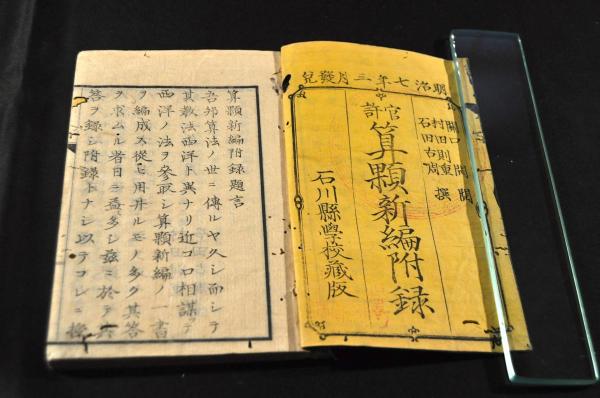 明治七年三月發兌
官許
關口 開 閲
村田則重
石田古周 撰
算顆新編附録
石川縣學校藏版
算顆新編附録題言
吾邦算法ノ世ニ傳ルヤ久シ而シテ
其教法西洋ト異ナリ近コロ相謀テ
西洋ノ法ヲ參取シ算顆新編ノ一書
ヲ編成ス從テ用井ルモノ多ク其答
ヲ求ムル者日ニ益多シ茲ニ於テ
答ヲ録シ附録トナシ以テコレニ